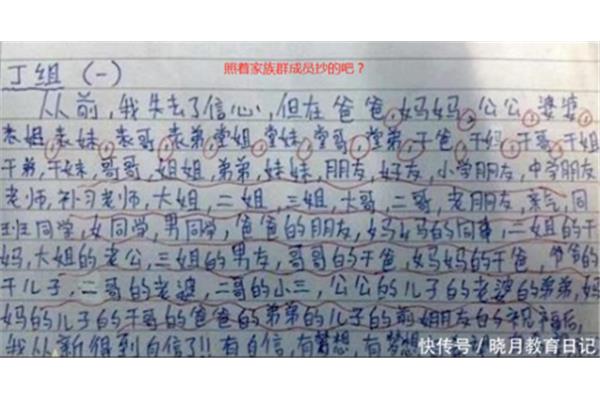 照着家族群成员抄的吧？
丁组 (一)
从前，我失去了信心，但在爸爸，妈妈，公公，婆婆，
表姐，表妹，表哥，表弟，堂姐，堂妹，堂哥，堂弟，干爸，干妈，干哥，干姐
干弟，干妹，哥哥，姐姐，弟弟，妹妹，朋友，好友，小学朋友，中学朋友
老师，补习老师，大姐，二姐，三姐，大哥，二哥，老朋友，亲戚，同
班同学，女同学，男同学，爸爸的朋友，妈妈的同事，二姐的干
妈，大姐的老公，三姐的男友，哥哥的干爸，妈妈的干爸，爷爷的
干儿子，二哥的老婆，二哥的小三，公公的儿子的老婆的弟弟，妈
妈的儿子的干哥的爸爸的弟弟的儿子的前女朋友的祝福后，
我从新得到自信了!! 有自信，有梦想，有梦想
快传号 / 晓月教育日记